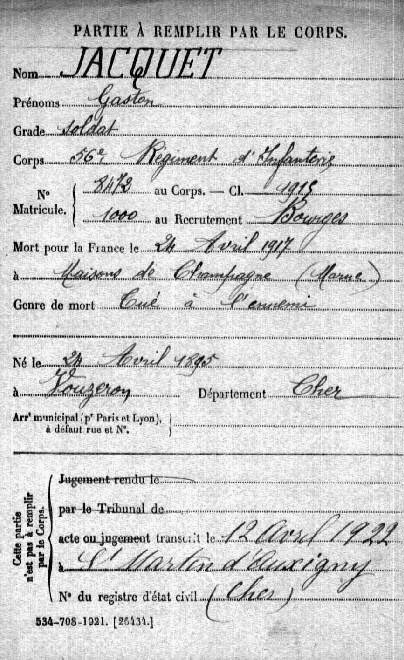 PARTIE À REMPLIR PAR LE CORPS.
Nom JACQUET
Prénoms Gaston
Grade soldat
Corps 56e Régiment d'Infanterie
N° Matricule. 8472 au Corps. — Cl. 1915
1000 au Recrutement Bourges
Mort pour la France le 24 Avril 1917
à Maisons de Champagne (Marne)
Genre de mort Tué à l'ennemi
Né le 24 Avril 1895
à Vouzeron Département Cher
Arrt municipal (pr Paris et Lyon),
à défaut rue et N°.
Cette partie n'est pas à remplir par le Corps.
Jugement rendu le
par le Tribunal de
acte ou jugement transcrit le 12 Avril 1922
à St Martin d'Auxigny
N° du registre d'état civil (Cher)
534-708-1921. [26434.]